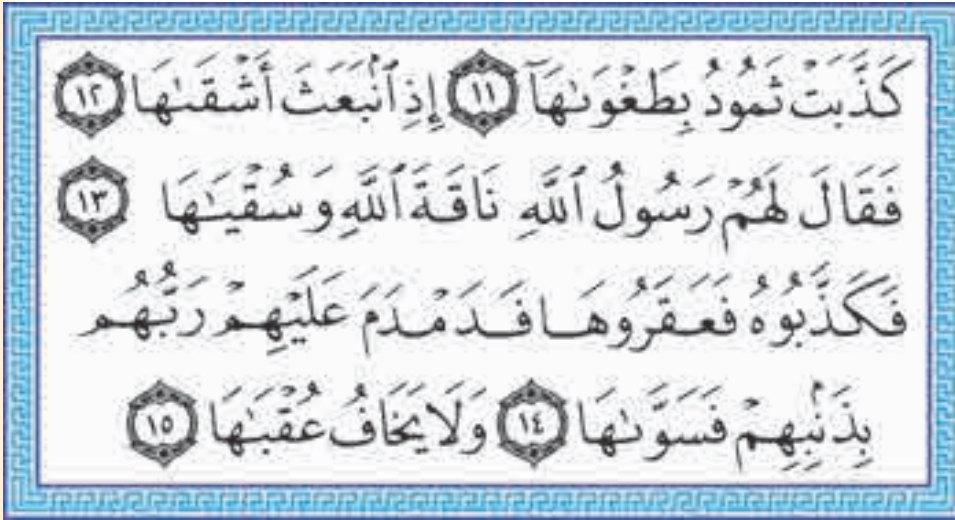 كَذَّبَتْ ثَمُودُ بِطَغْوَىٰهَآ ١١ إِذِ ٱنۢبَعَثَ أَشْقَىٰهَا ١٢
فَقَالَ لَهُمْ رَسُولُ ٱللَّهِ نَاقَةَ ٱللَّهِ وَسُقْيَٰهَا ١٣
فَكَذَّبُوهُ فَعَقَرُوهَا فَدَمْدَمَ عَلَيْهِمْ رَبُّهُم
بِذَنۢبِهِمْ فَسَوَّىٰهَا ١٤ وَلَا يَخَافُ عُقْبَٰهَا ١٥